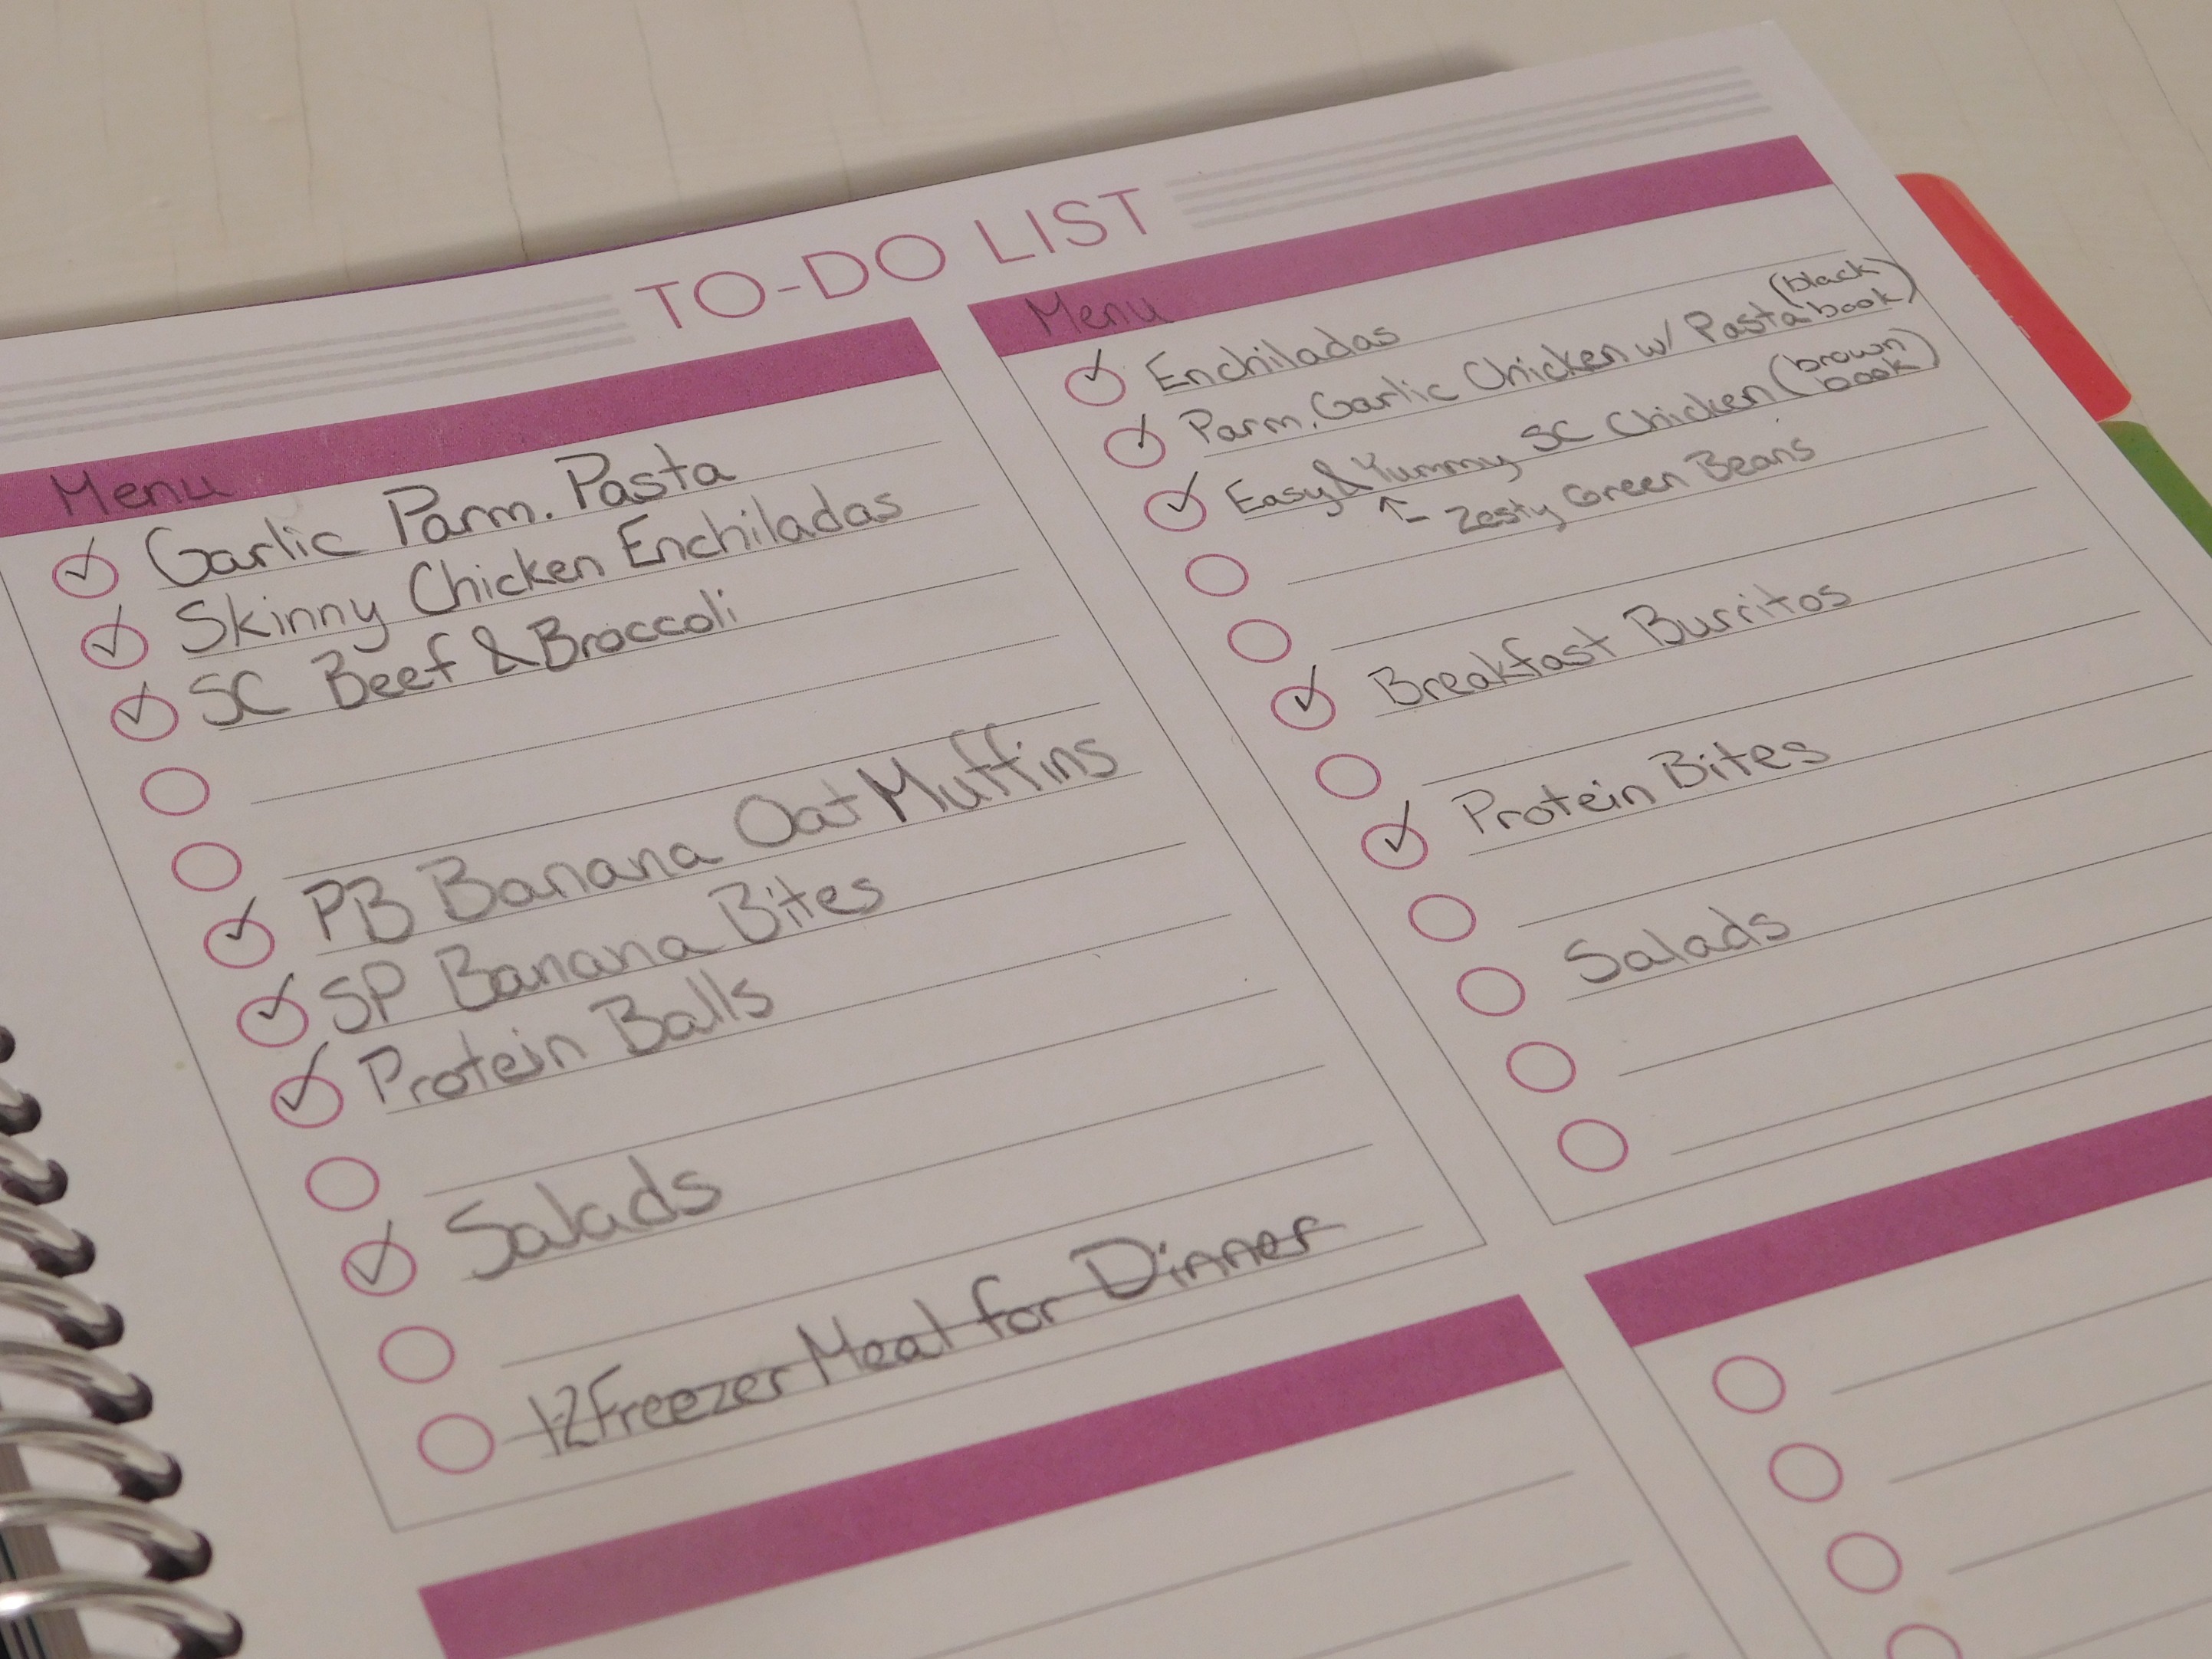 TO-DO LIST
Menu
Garlic Parm. Pasta
Skinny Chicken Enchiladas
SC Beef & Broccoli
PB Banana Oat Muffins
SP Banana Bites
Protein Balls
Salads
1-2 Freezer Meal for Dinner
Menu
Enchiladas
Parm. Garlic Chicken w/ Pasta (black book)
Easy & Yummy SC Chicken (brown book)
↑- Zesty Green Beans
Breakfast Burritos
Protein Bites
Salads